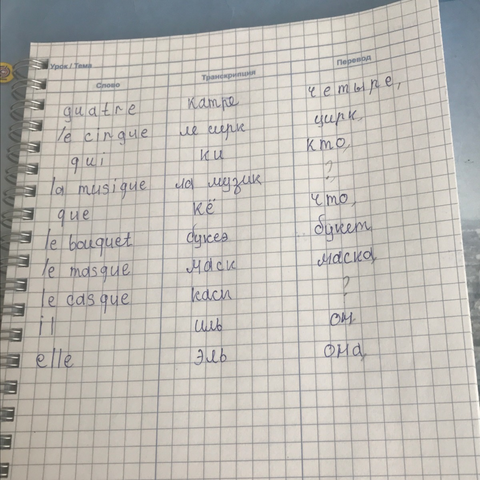 Урок / Тема
Слово Транскрипция Перевод
quatre катре четыре,
le cirque ле сирк цирк,
qui ки кто,
la musique ла музик ?
que кё что,
le bouquet букеэ букет
le masque маск маска
le casque каск ?
il иль он
elle эль она